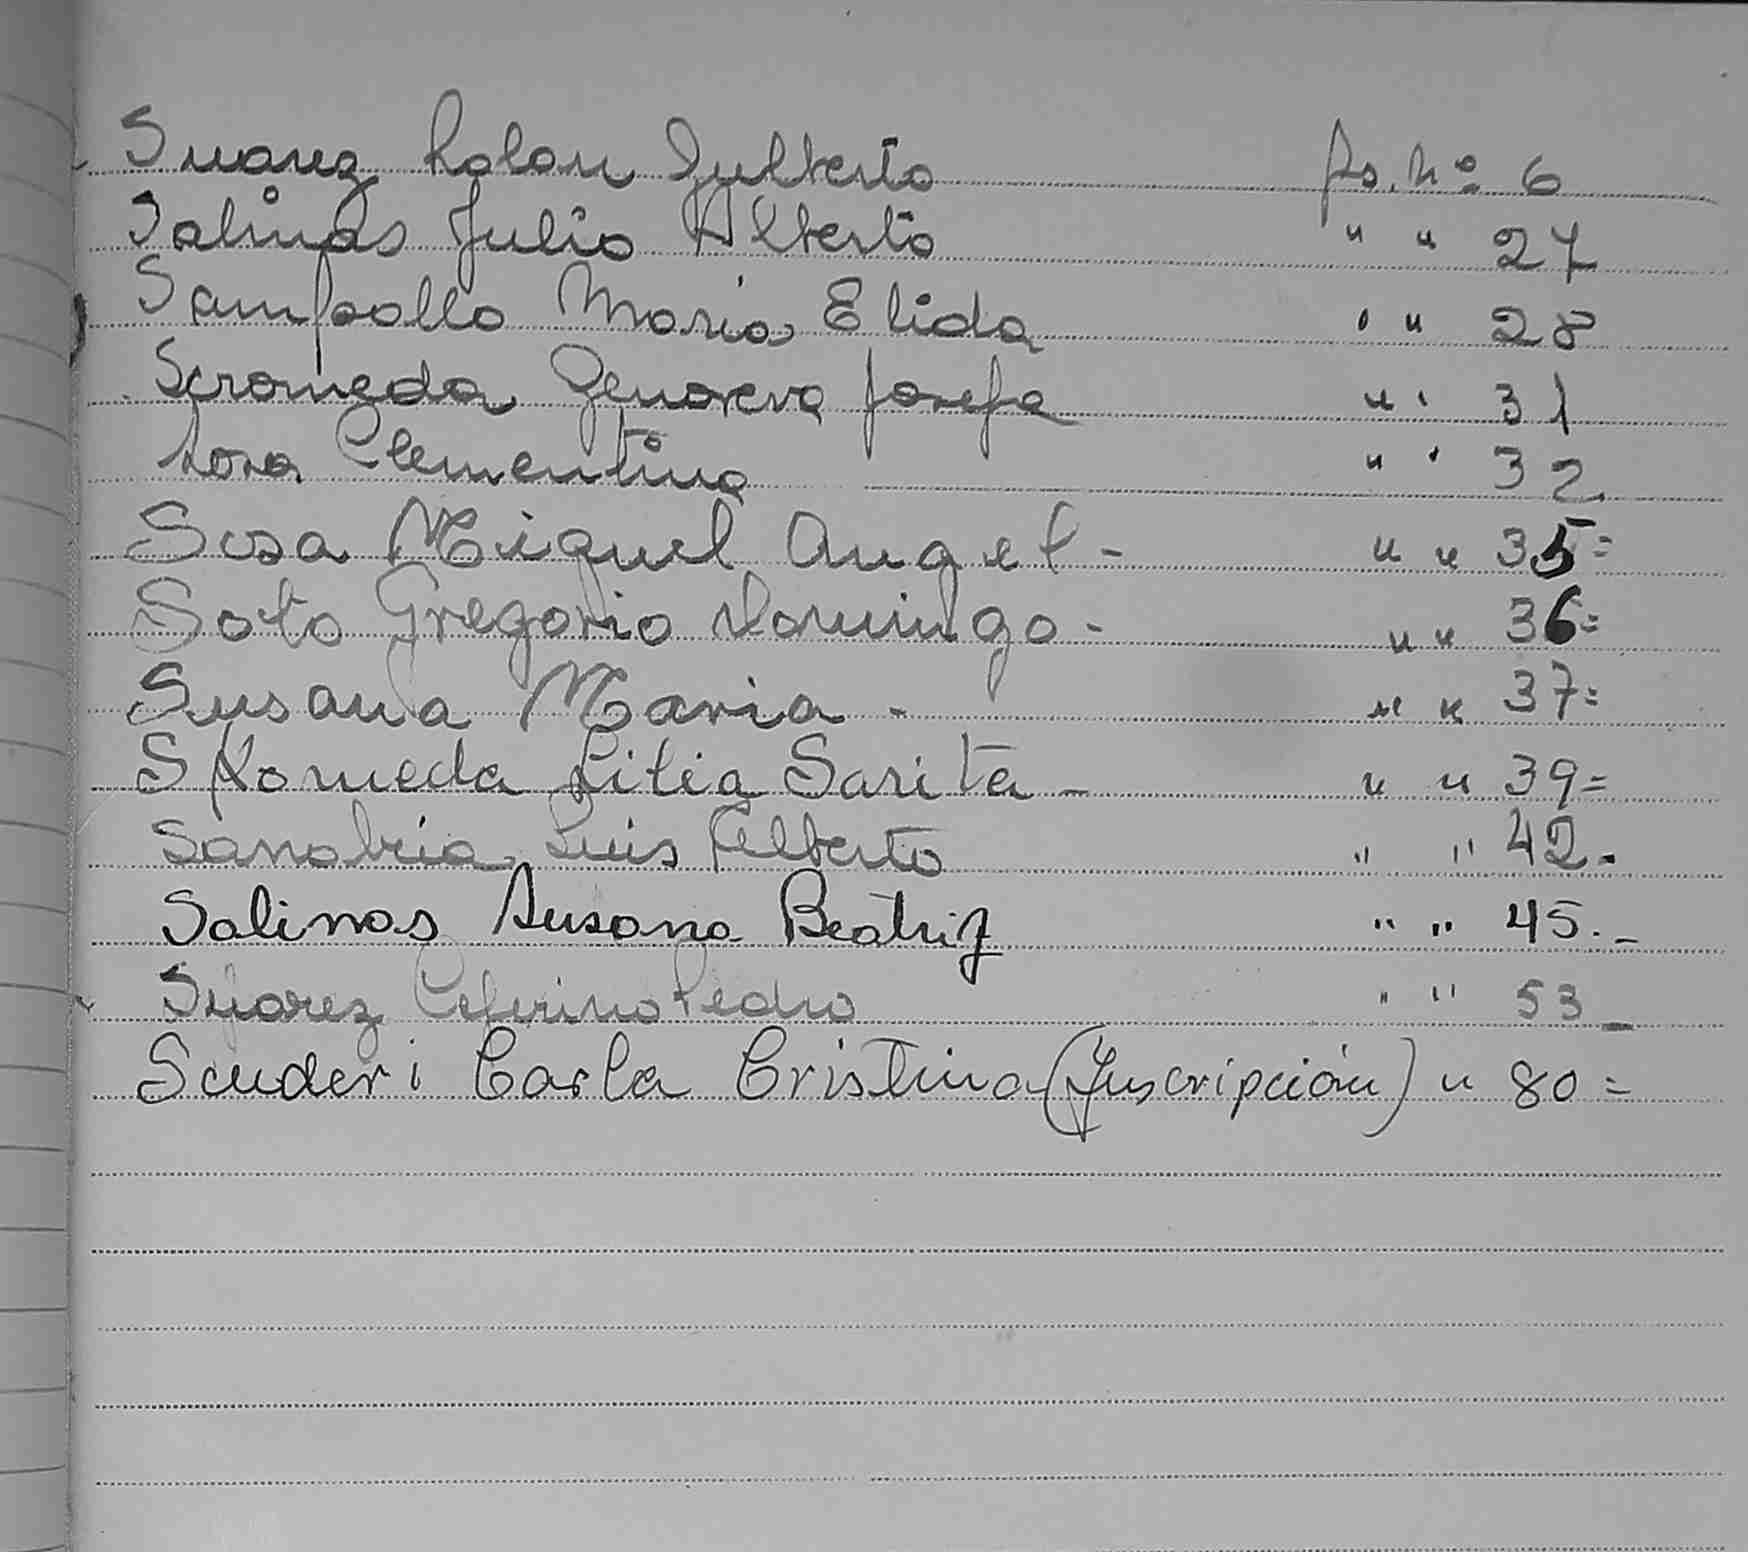 Suarez Rolon Gilberto fs. Nº 6
Salinas Julio Alberto " " 27
Sampallo Maria Elida " " 28
Scromeda Genoveva Josefa " " 31
Sosa Clementina " " 32
Sosa Miguel Angel - " " 35=
Soto Gregorio Domingo - " " 36=
Susana Maria - " " 37=
Skromeda Litia Sarita - " " 39=
Sanabria Luis Alberto " " 42.-
Salinas Susana Beatriz " " 45.-
Suarez Ceferino Pedro " " 53_
Scuderi Carla Cristina (Inscripción) " 80=